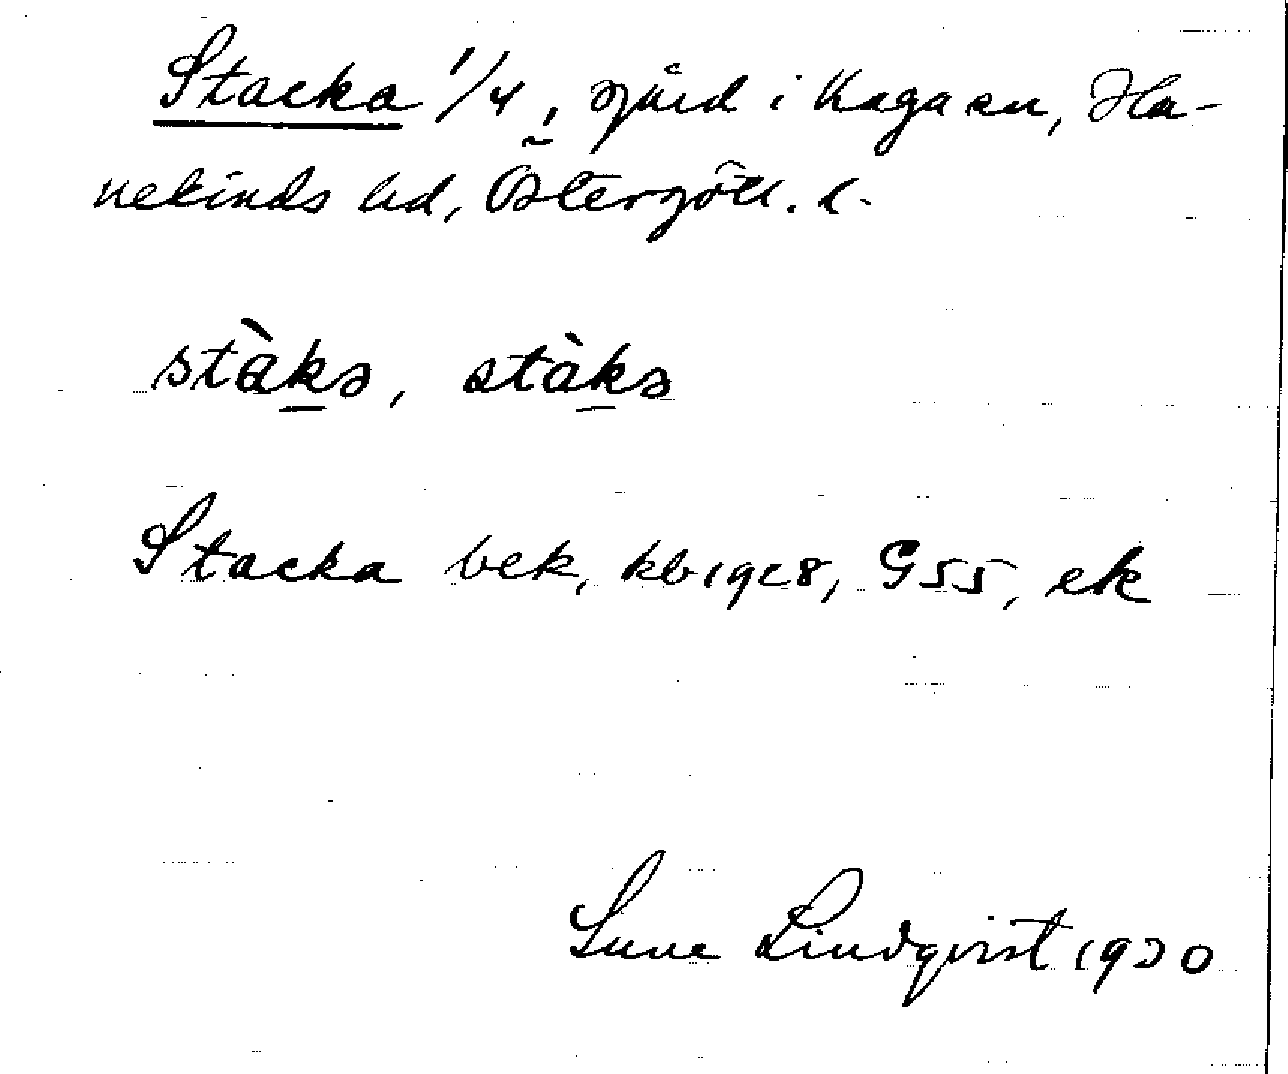 Stacka 1/4, gård i Kaga sn, Ha-
nekinds hd, Östergötl. l.
stàkə, stàkə
Stacka bek, kb 1918, G 55, ek
Sune Lindqvist 1920